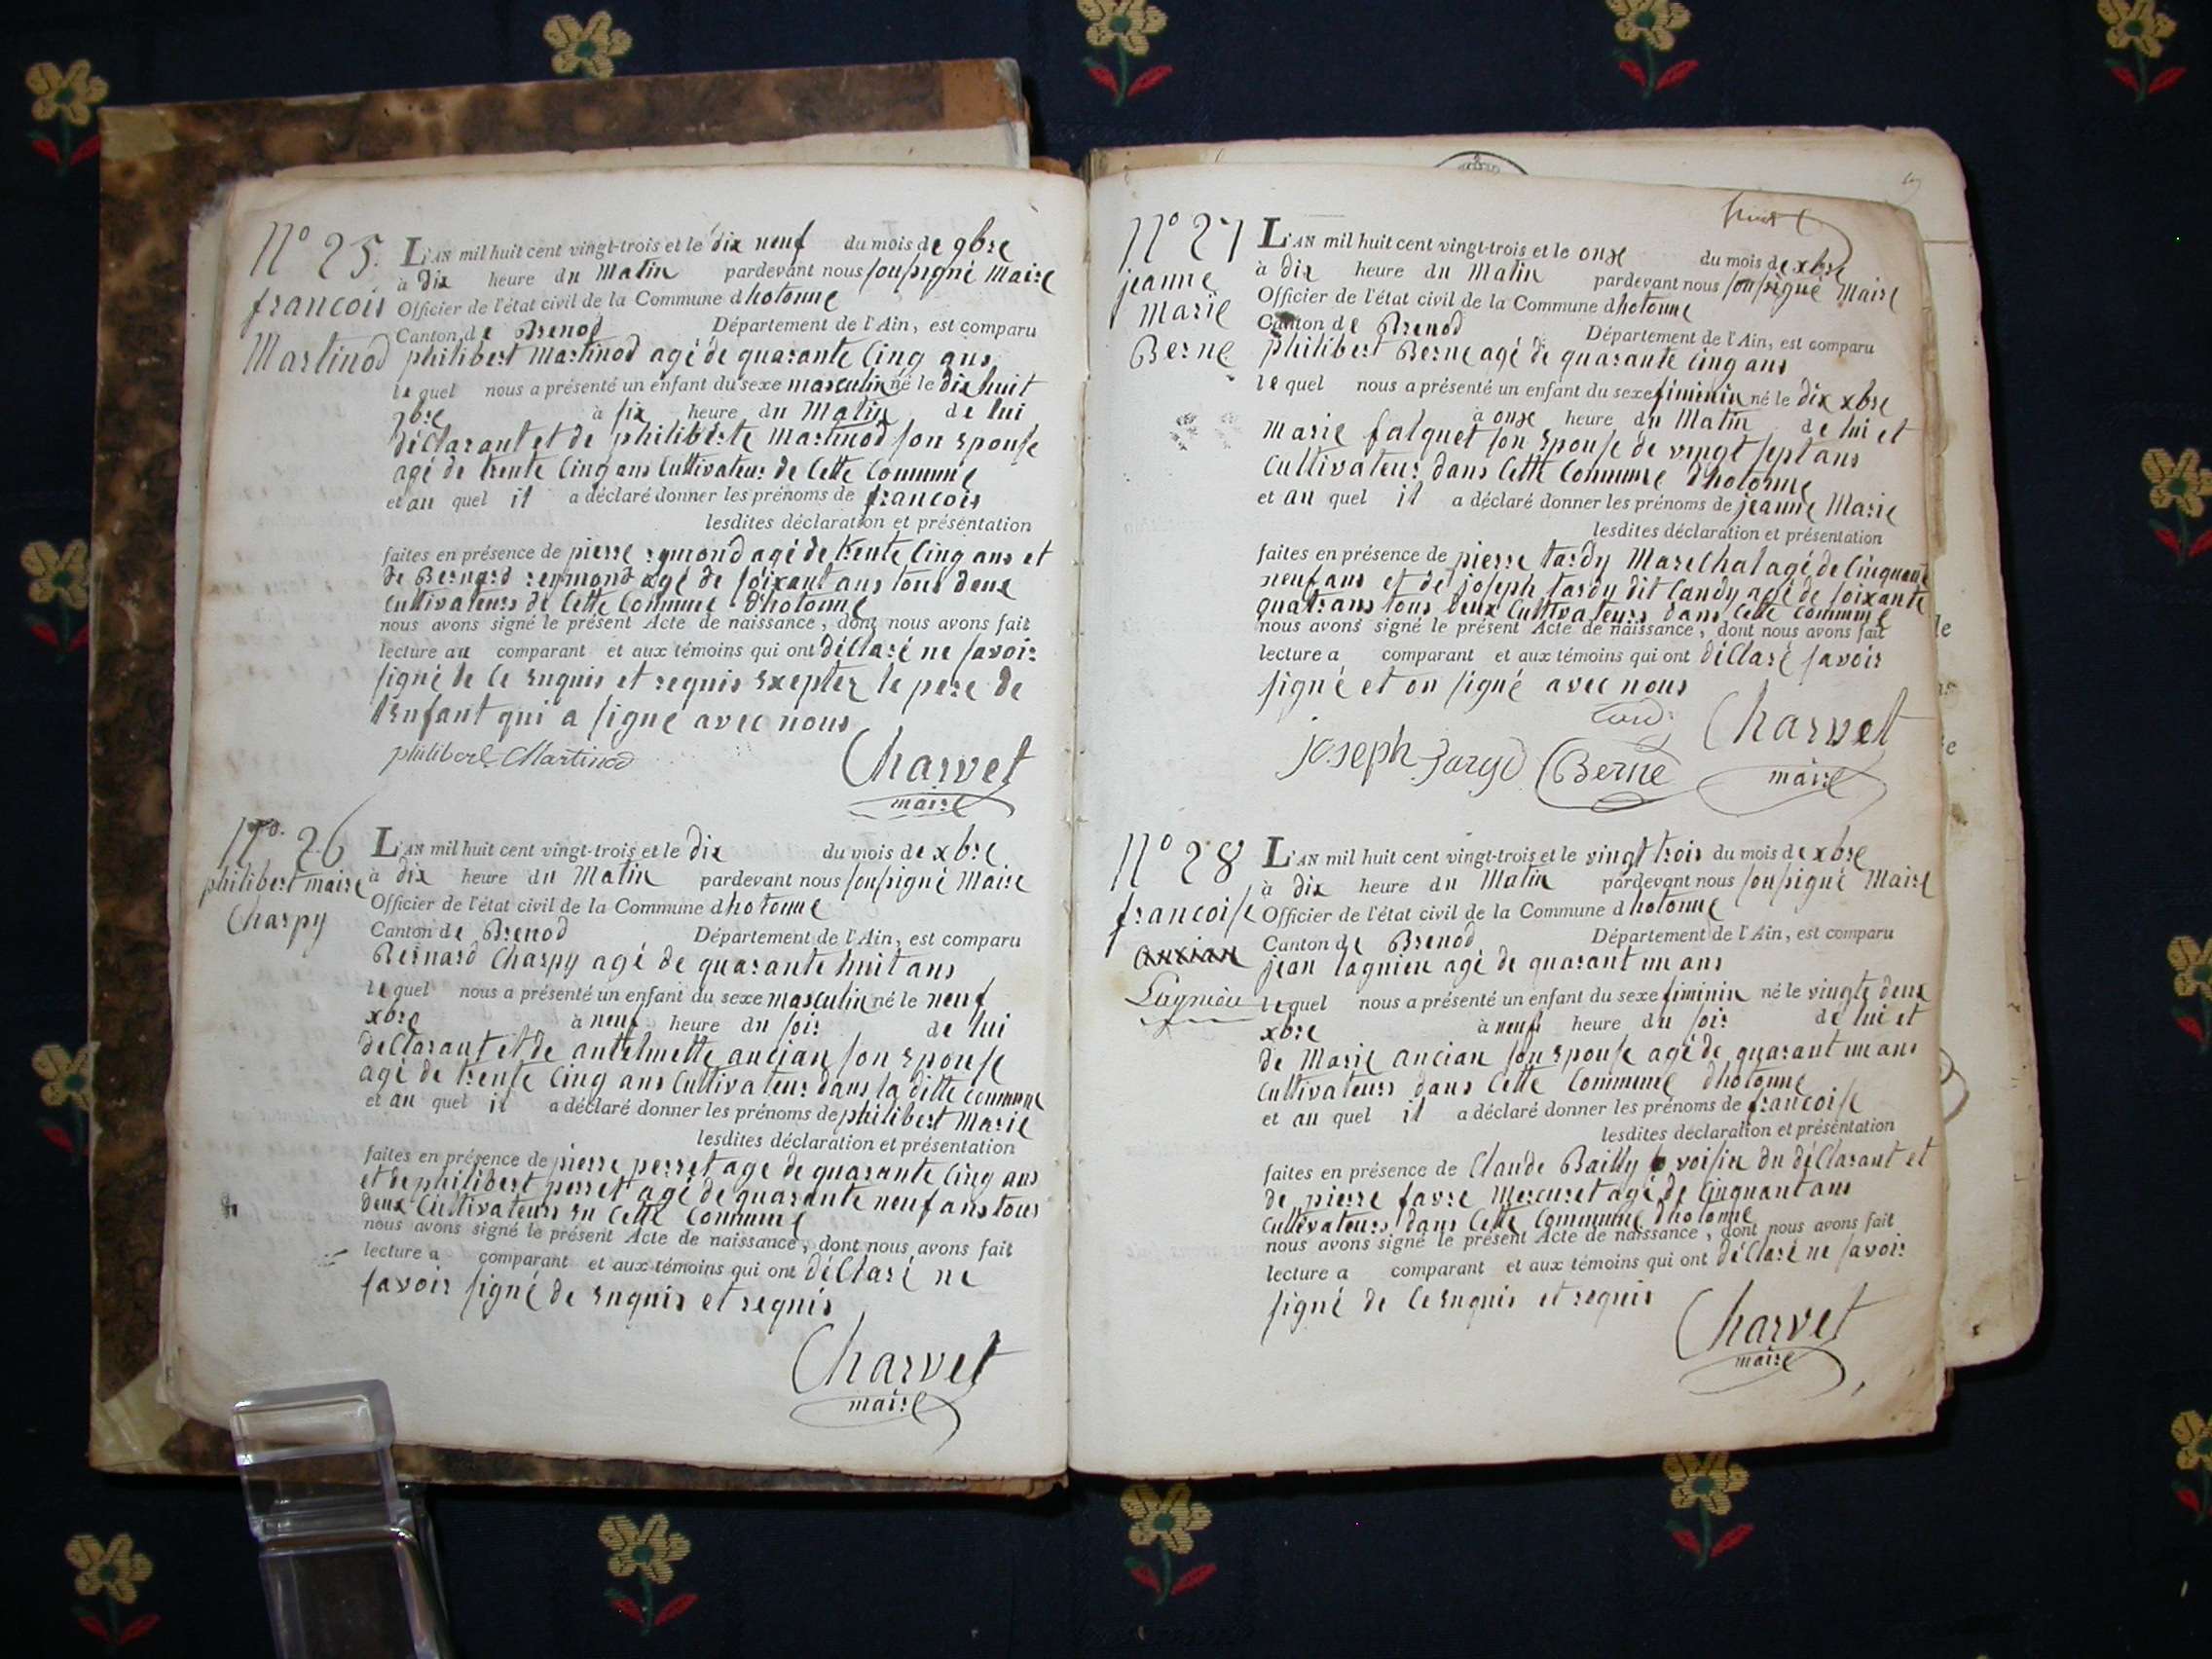 N° 25.
francois
Martinod
L'AN mil huit cent vingt-trois et le dix neuf du mois de 9bre
à dix heure du Matin pardevant nous soussigné Maire
Officier de l'état civil de la Commune dhotonne
Canton de Brenod Département de l'Ain, est comparu
philibert Martinod agé de quarante Cinq ans
le quel nous a présenté un enfant du sexe masculin né le dix huit
9bre à six heure du Matin de lui
déclarant et de philiberte Martinod son Epouse
agé de trente Cinq ans Cultivateur de Cette Commune
et au quel il a déclaré donner les prénoms de francois
lesdites déclaration et présentation
faites en présence de pierre reymond agé de trente Cinq ans et
de Bernard reymond agé de soixant ans tous deux
Cultivateurs de Cette Commune dhotonne
nous avons signé le présent Acte de naissance, dont nous avons fait
lecture au comparant et aux témoins qui ont déClaré ne savoir
signé de Ce Enquis et requis Exepter le pere de
lEnfant qui a signe avec nous
philibert Martinod
Charvet
maire
N° 26
philibert maire
Charpy
L'AN mil huit cent vingt-trois et le dix du mois de xbre
à dix heure du Matin pardevant nous soussigné Maire
Officier de l'état civil de la Commune dhotonne
Canton de Brenod Département de l'Ain, est comparu
Bernard Charpy agé de quarante huit ans
le quel nous a présenté un enfant du sexe masculin né le neuf
xbre à neuf heure du soir de lui
déClarant et de antelmette ancian son Epouse
agé de trente Cinq ans Cultivateur dans la ditte Commune
et au quel il a déclaré donner les prénoms de philibert Marie
lesdites déclaration et présentation
faites en présence de pierre perret age de quarante Cinq ans
et de philibert perret agé de quarante neuf ans tous
deux Cultivateurs En Cette Commune
nous avons signé le présent Acte de naissance, dont nous avons fait
lecture a comparant et aux témoins qui ont déClaré ne
savoir signé de Enquis et requis
Charvet
maire
N° 27
jeanne
Marie
Berne
L'AN mil huit cent vingt-trois et le onze du mois de xbre
à dix heure du Matin pardevant nous soussigné Maire
Officier de l'état civil de la Commune dhotonne
Canton de Brenod Département de l'Ain, est comparu
philibert Berne agé de quarante Cinq ans
le quel nous a présenté un enfant du sexe fiminin né le dix xbre
à onze heure du Matin de lui et
Marie falquet son Epouse de vingt sept ans
Cultivateur dans Cette Commune dhotonne
et au quel il a déclaré donner les prénoms de jeanne Marie
lesdites déclaration et présentation
faites en présence de pierre tardy MareChal agé de Cinquante
neuf ans et de joseph tardy dit Candy agé de soixante
quatrans tous deux Cultivateurs dans Cette Commune
nous avons signé le présent Acte de naissance, dont nous avons fait
lecture a comparant et aux témoins qui ont déClaré savoir
signé et on signé avec nous
joseph
Berne
Charvet
maire
N° 28
francoise
Lagnieu
L'AN mil huit cent vingt-trois et le vingt trois du mois de xbre
à dix heure du Matin pardevant nous soussigné Maire
Officier de l'état civil de la Commune dhotonne
Canton de Brenod Département de l'Ain, est comparu
jean lagnieu agé de quarant un ans
le quel nous a présenté un enfant du sexe fiminin né le vingte deux
xbre à neuf heure du soir de lui et
de Marie ancian son Epouse agé de quarant un ans
Cultivateurs dans Cette Commune dhotonne
et au quel il a déclaré donner les prénoms de francoise
lesdites déclaration et présentation
faites en présence de Claude Bailly voisin du déClarant et
de pierre favre Mercuret agé de Cinquant ans
Cultivateurs dans Cette Commune dhotonne
nous avons signé le présent Acte de naissance, dont nous avons fait
lecture a comparant et aux témoins qui ont déClaré ne savoir
signé de Ce Enquis et requis
Charvet
maire